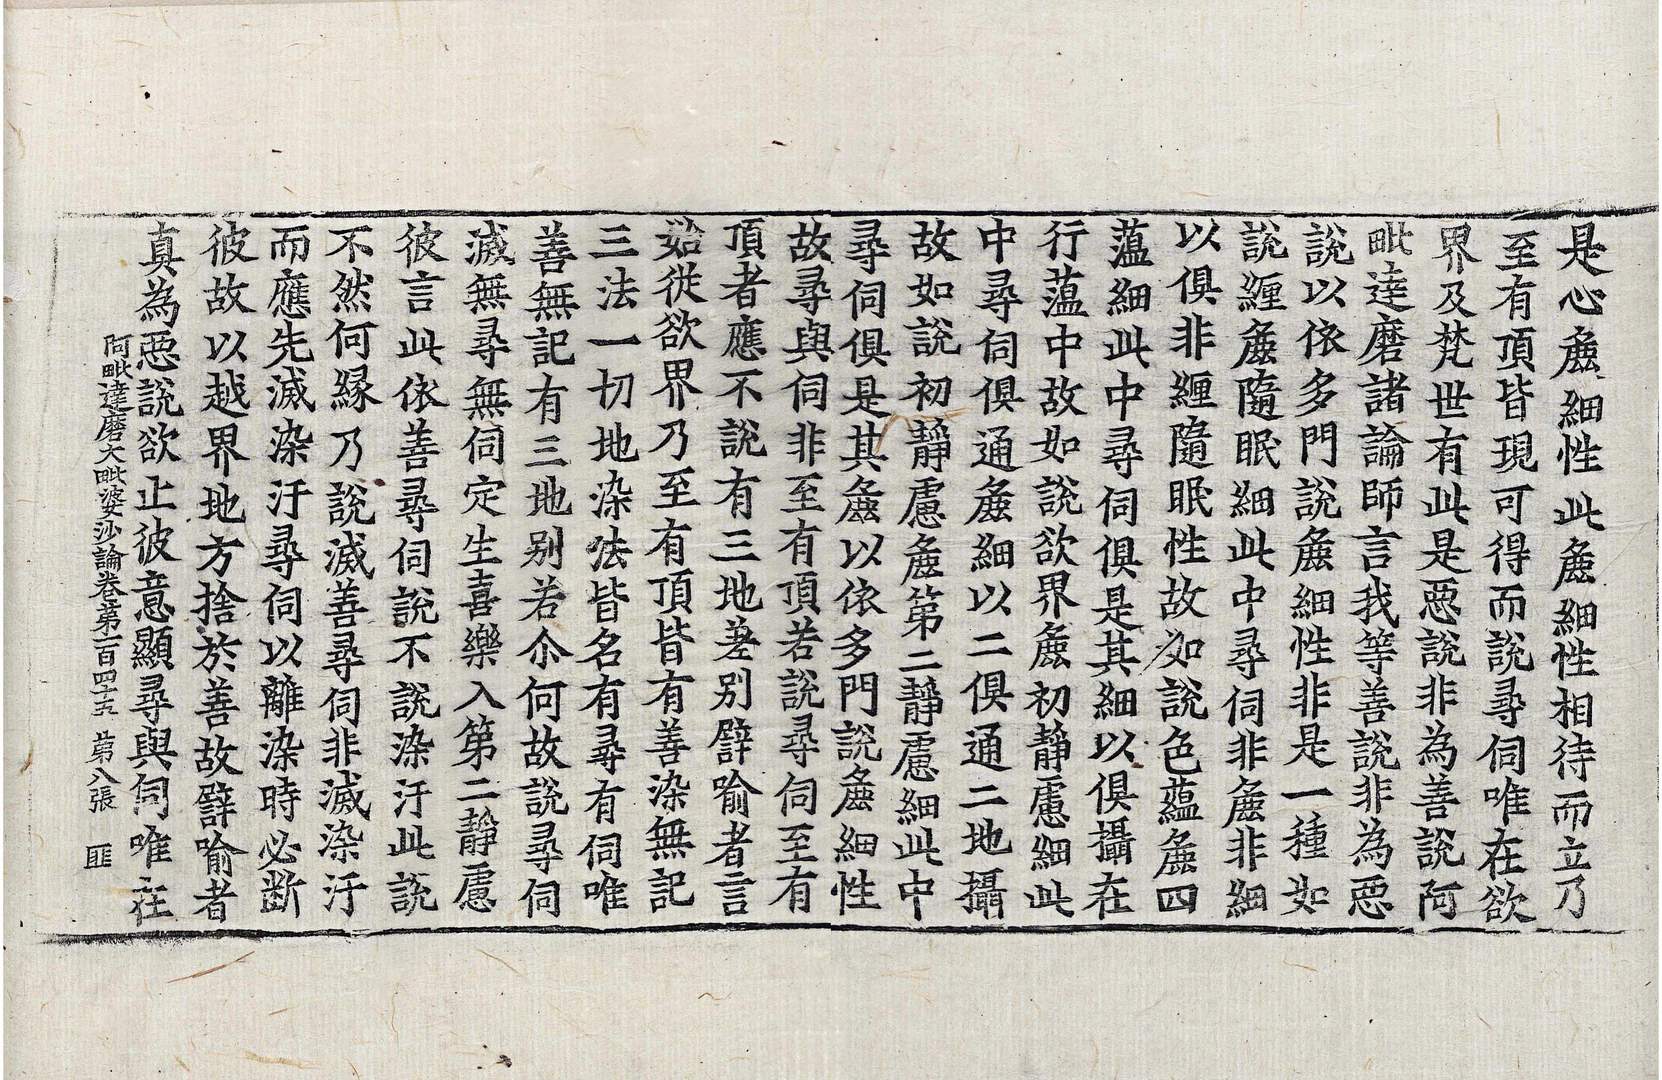 是心麁細性此麁細性相待而立乃
至有頂皆現可得而說尋伺唯在欲
界及梵世有此是惡說非為善說阿
毗達磨諸論師言我等善說非為惡
說以依多門說麁細性非是一種如
說纒麁隨眠細此中尋伺非麁非細
以俱非纒隨眠性故如說色蘊麁四
蘊細此中尋伺俱是其細以俱攝在
行蘊中故如說欲界麁初靜慮細此
中尋伺俱通麁細以二俱通二地攝
故如說初靜慮麁第二靜慮細此中
尋伺俱是其麁以依多門說麁細性
故尋與伺非至有頂若說尋伺至有
頂者應不說有三地差别譬喻者言
始從欲界乃至有頂皆有善染無記
三法一切地染法皆名有尋有伺唯
善無記有三地别若尒何故說尋伺
滅無尋無伺定生喜樂入第二靜慮
彼言此依善尋伺說不說染汙此說
不然何緣乃說滅善尋伺非滅染汙
而應先滅染汙尋伺以離染時必斷
彼故以越界地方捨於善故譬喻者
真為惡說欲止彼意顯尋與伺唯在
阿毗達磨大毗婆沙論卷第一百四十五 第八張 匪